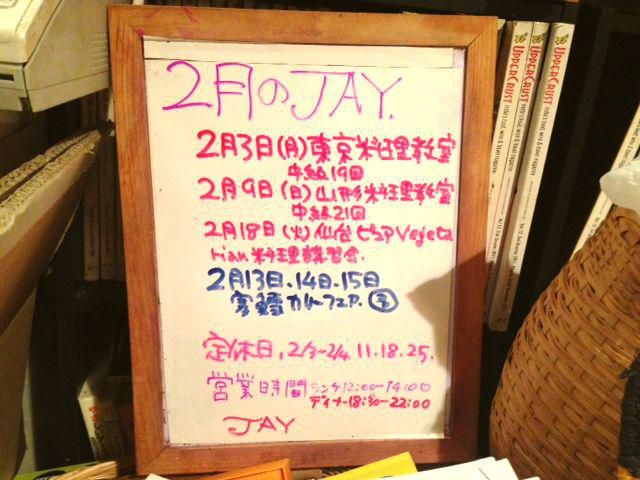 2月のJAY.
2月3日(月)東京料理教室
中級19回
2月9日(日)山形料理教室
中級21回
2月18日(火)仙台ピュアVegeta
rian料理講習会.
2月13日.14日.15日
カレーフェア.
定休日, 2/3~2/4, 11.18.25.
営業時間 ランチ12:00-14:00
ディナー18:30-22:00
JAY
UPPERCRUST
UPPERCRUST
UPPERCRUST